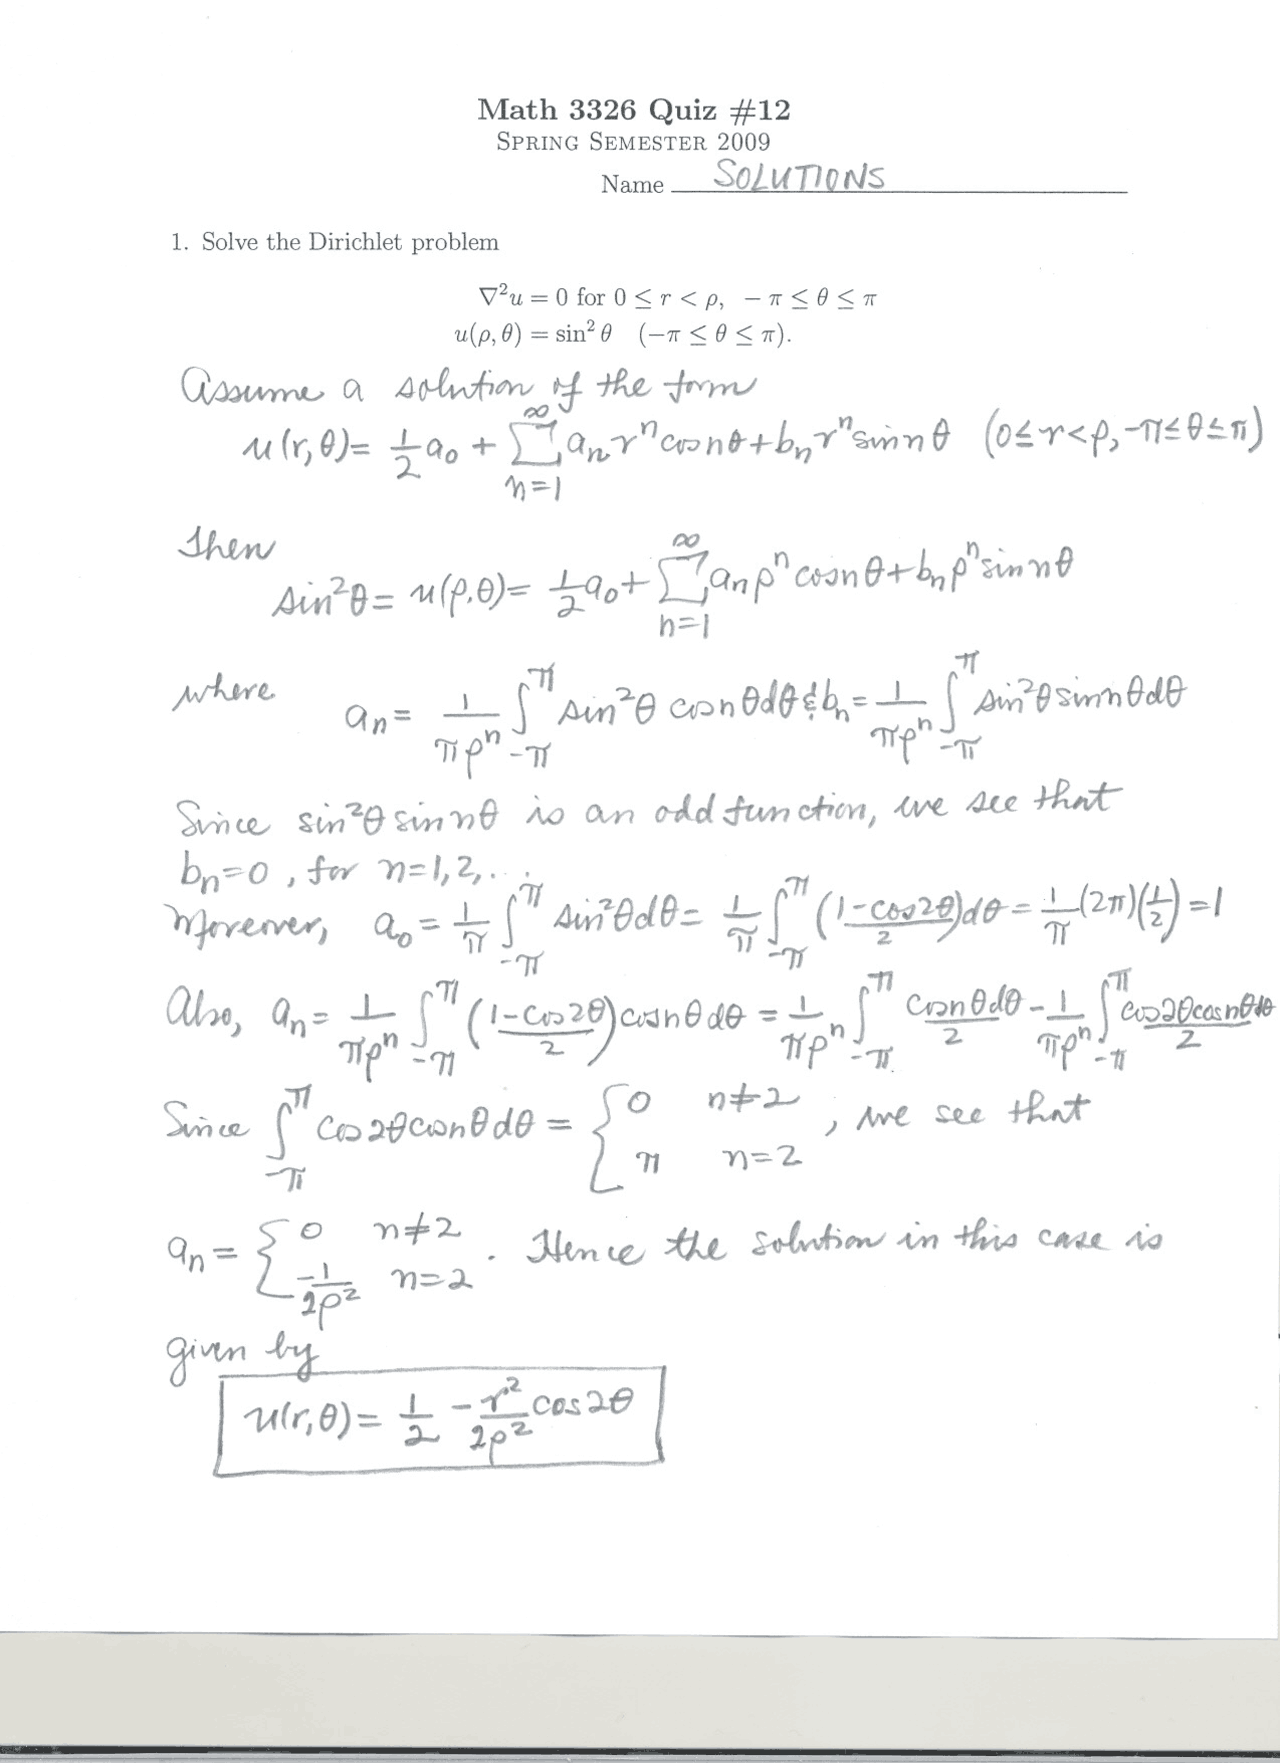 Math 3326 Quiz #12
SPRING SEMESTER 2009
Name SOLUTIONS
1. Solve the Dirichlet problem
∇²u = 0 for 0 ≤ r < ρ, −π ≤ θ ≤ π
u(ρ, θ) = sin² θ (−π ≤ θ ≤ π).
Assume a solution of the form
u(r, θ) = 1/2 a₀ + ∑_{n=1}^{∞} aₙ rⁿ cos nθ + bₙ rⁿ sin nθ (0 ≤ r < ρ, −π ≤ θ ≤ π)
Then
sin²θ = u(ρ, θ) = 1/2 a₀ + ∑_{n=1}^{∞} aₙ ρⁿ cos nθ + bₙ ρⁿ sin nθ
where aₙ = 1/(πρⁿ) ∫_{−π}^{π} sin²θ cos nθ dθ & bₙ = 1/(πρⁿ) ∫_{−π}^{π} sin²θ sin nθ dθ
Since sin²θ sin nθ is an odd function, we see that
bₙ = 0, for n = 1, 2, ...
Moreover, a₀ = 1/π ∫_{−π}^{π} sin²θ dθ = 1/π ∫_{−π}^{π} (1 − cos 2θ)/2 dθ = 1/π (2π)(1/2) = 1
Also, aₙ = 1/(πρⁿ) ∫_{−π}^{π} ((1 − cos 2θ)/2) cos nθ dθ = 1/(πρⁿ) ∫_{−π}^{π} cos nθ dθ/2 − 1/(πρⁿ) ∫_{−π}^{π} cos 2θ cos nθ dθ/2
Since ∫_{−π}^{π} cos 2θ cos nθ dθ = { 0 n ≠ 2; π n = 2 , we see that
aₙ = { 0 n ≠ 2; −1/(2ρ²) n = 2 . Hence the solution in this case is
given by
u(r, θ) = 1/2 − r²/(2ρ²) cos 2θ